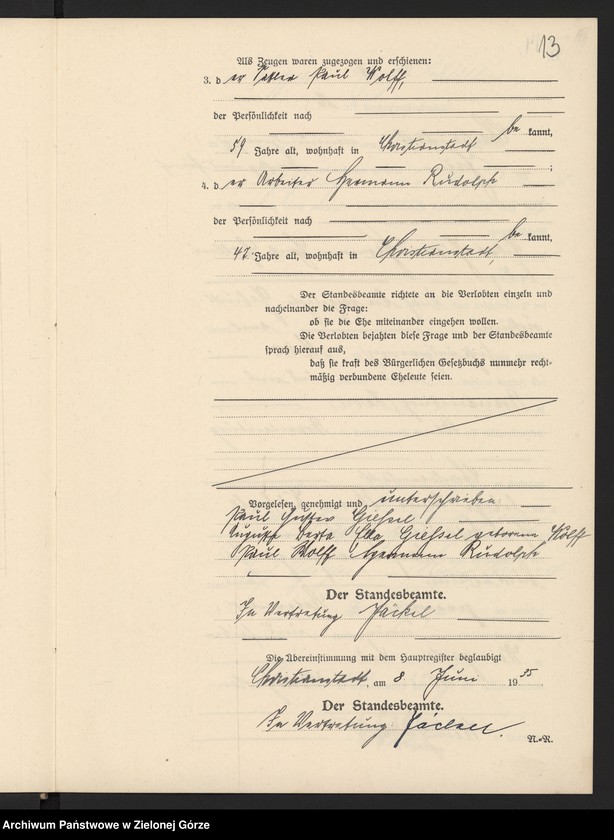 13
Als Zeugen waren zugezogen und erschienen:
3. d er Paul Wolff,
der Persönlichkeit nach
be kannt,
59 Jahre alt, wohnhaft in Christianstadt
;
4. d er Arbeiter Hermann Rudolph
der Persönlichkeit nach
be kannt,
Jahre alt, wohnhaft in Christianstadt,
Der Standesbeamte richtete an die Verlobten einzeln und
nacheinander die Frage:
ob sie die Ehe miteinander eingehen wollen.
Die Verlobten bejahten diese Frage und der Standesbeamte
sprach hierauf aus,
daß sie kraft des Bürgerlichen Gesetzbuchs nunmehr recht-
mäßig verbundene Eheleute seien.
Vorgelesen, genehmigt und unterschrieben
Paul Gustav Gießel
Auguste Berta Gießel geborene Wolff
Paul Wolff Hermann Rudolph
Der Standesbeamte.
In Vertretung Jäckel
Die Übereinstimmung mit dem Hauptregister beglaubigt
Christianstadt, am 8 Juni 1935
Der Standesbeamte.
In Vertretung Jäckel.
N.-R.
Archiwum Państwowe w Zielonej Górze